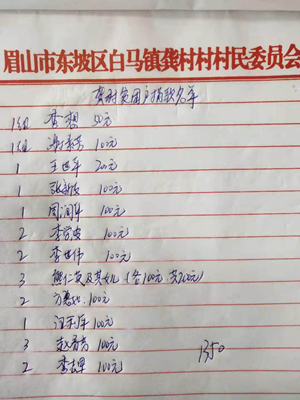 眉山市东坡区白马镇龚村村村民委员会
龚村贫困户捐款名单
1组 李想 50元
1组 100元
1 王世军 200元
1 张 100元
1 周润年 100元
2 李 100元
2 李世伟 100元
3 熊仁英及其女儿(各100元 共200元)
2 方 100元
1 汪 100元
3 赵 100元
2 李 100元
1350